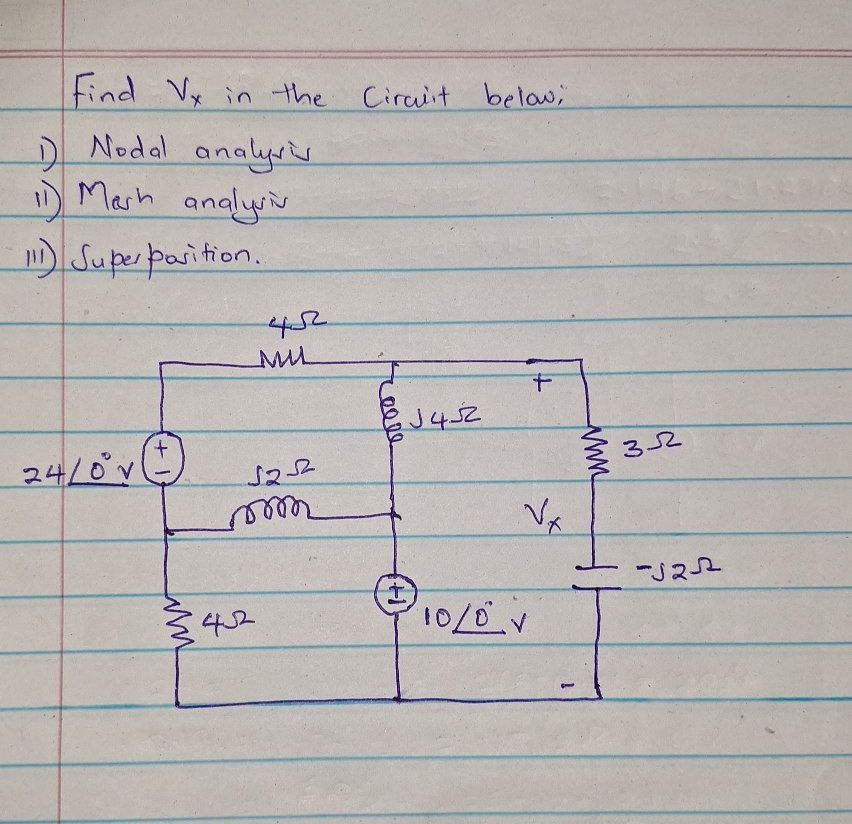 Find Vx in the Circuit below;
I) Nodal analysis
II) Mesh analysis
III) Superposition.
4Ω
+
J4Ω
3Ω
+
-
24/0° V
J2Ω
Vx
-J2Ω
+
-
10/0° V
4Ω
-